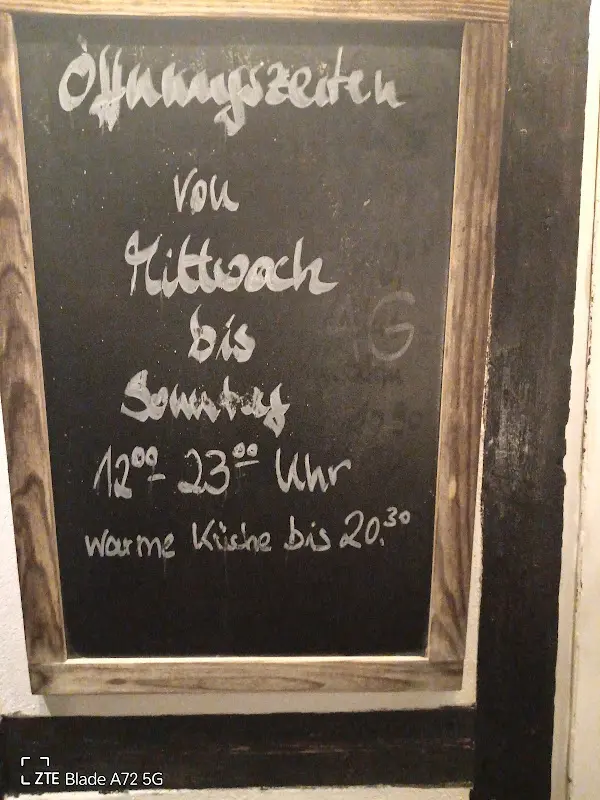 Öffnungszeiten
von
Mittwoch
bis
Sonntag
12⁰⁰- 23⁰⁰ Uhr
warme Küche bis 20.³⁰
ZTE Blade A72 5G